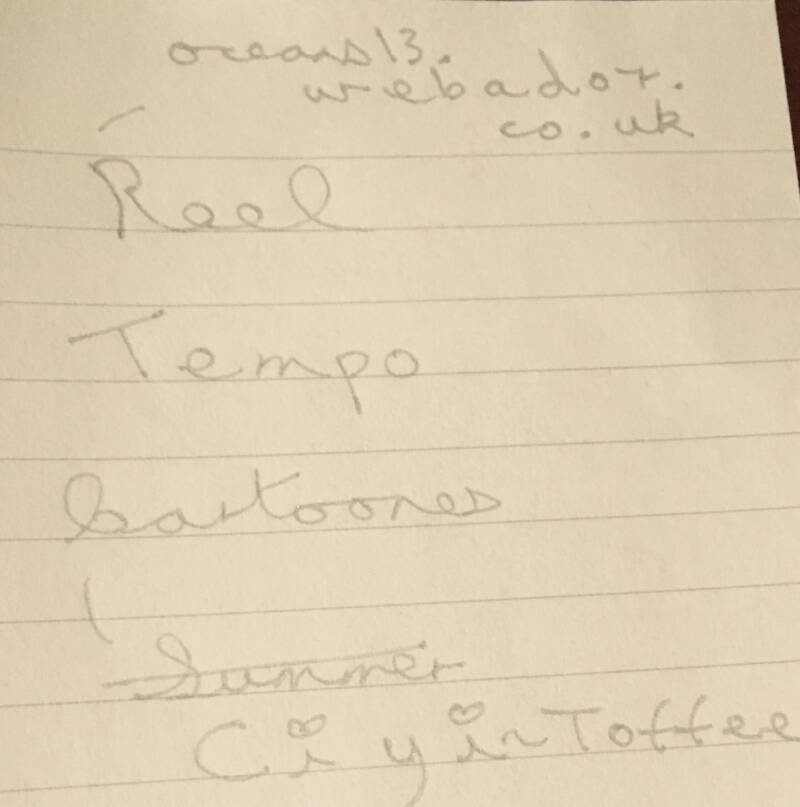 oceans13.
webador.
co.uk
Reel
Tempo
Cartoones
Summer
Ci yin Toffee